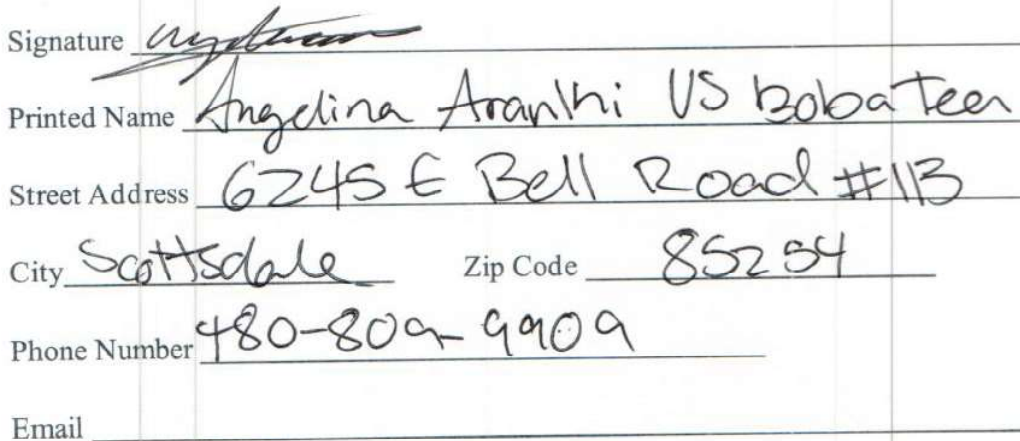 Signature
Printed Name Angelina Aranthi US Boba Teen
Street Address 6245 E Bell Road #113
City Scottsdale Zip Code 85254
Phone Number 480-809-9909
Email